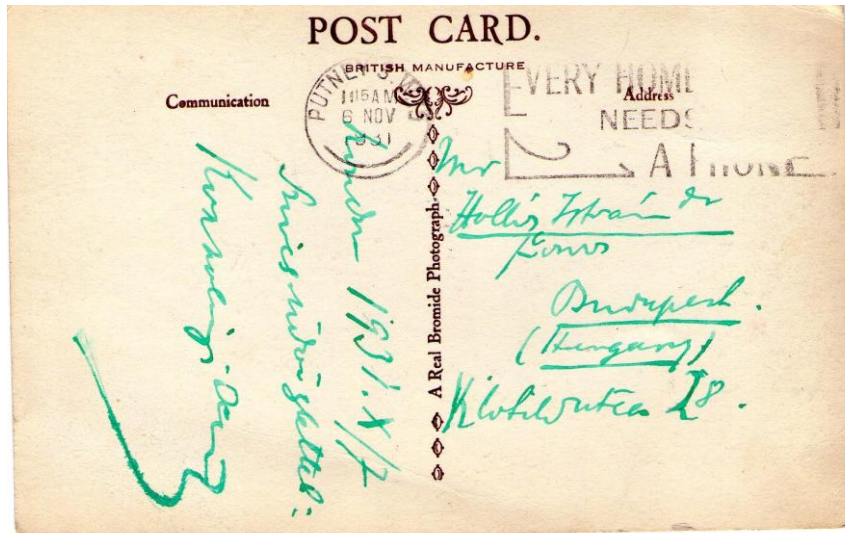 POST CARD.
BRITISH MANUFACTURE
Communication
Address
PUTNEY S.W.
11 15 AM
6 NOV
1931
EVERY HOME
NEEDS
A PHONE
A Real Bromide Photograph
London 1931. X/7
Szives üdvözlettel:
Mr
Hollós István dr
orvos
Budapest.
(Hungary)
Klotild utca